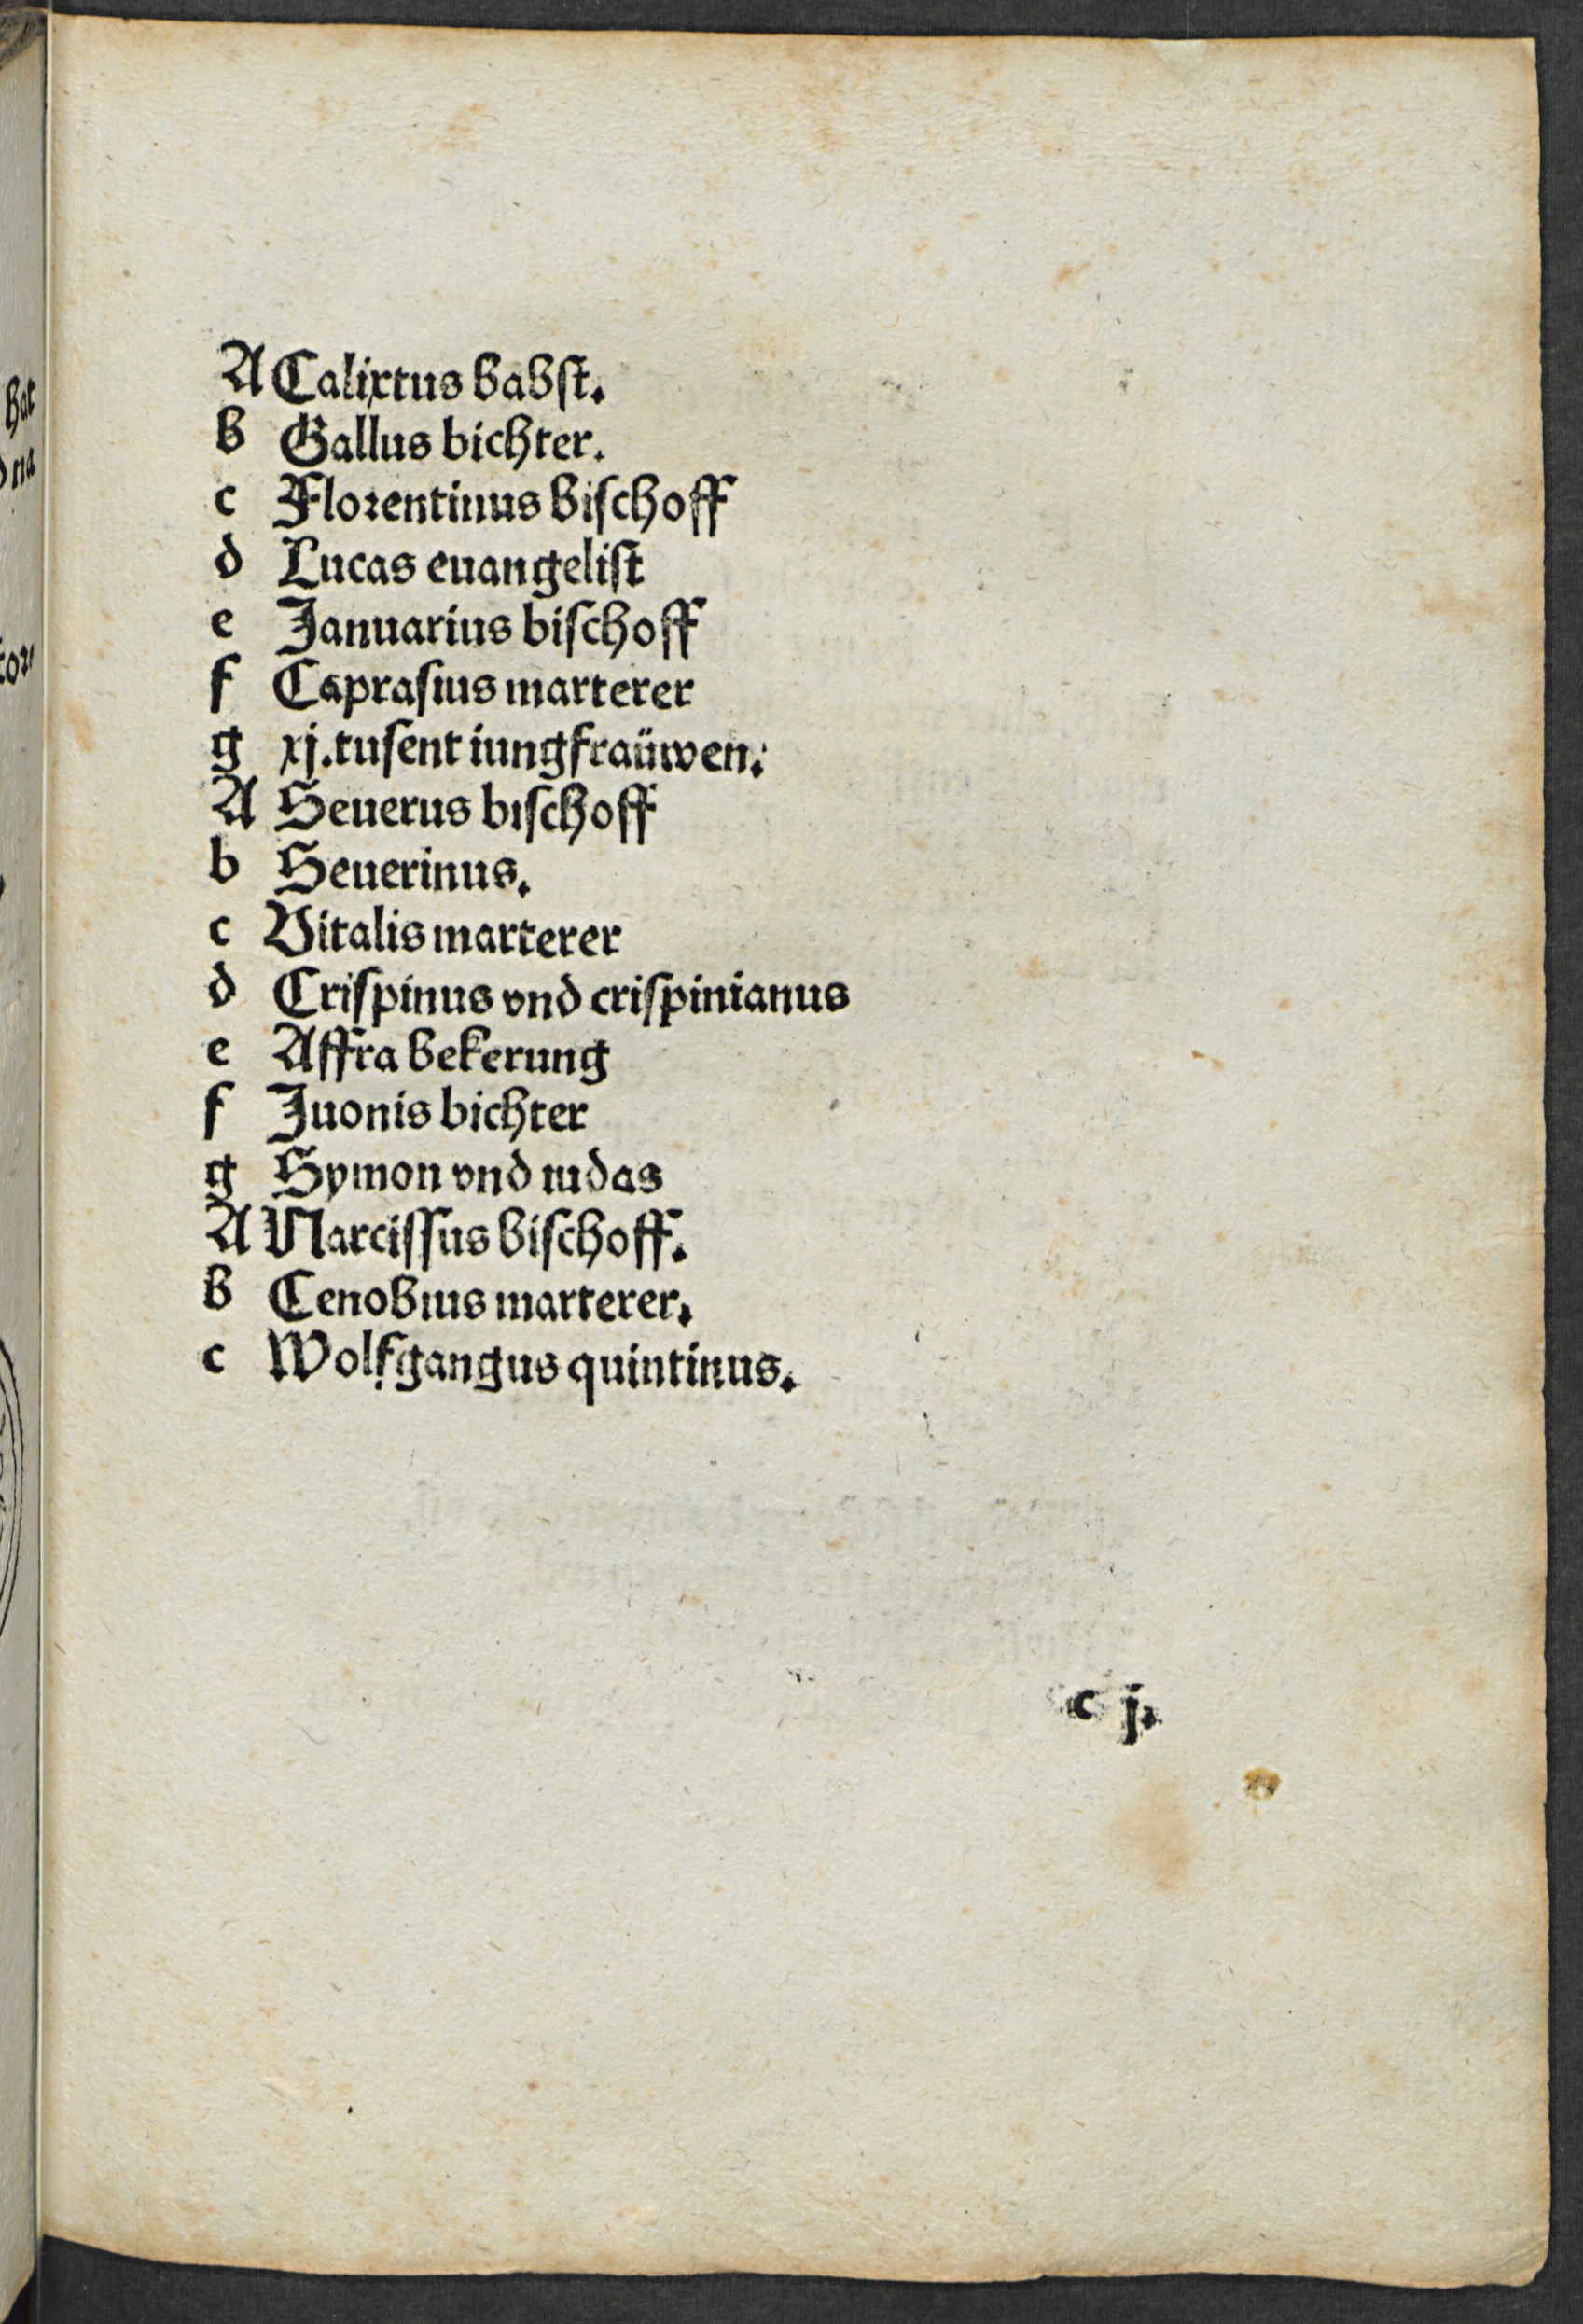 A Calixtus babſt.
b Gallus bichter.
c Florentinus biſchoff
d Lucas euangeliſt
e Januarius biſchoff
f Caprasius marterer
g xj. tuſent iungfraüwen.
A Seuerus biſchoff
b Seuerinus.
c Vitalis marterer
d Criſpinus vnd criſpinianus
e Affra bekerung
f Juonis bichter
g Symon vnd iudas
A Narciſſus biſchoff.
b Cenobius marterer.
c Wolfgangus quintinus.
c j.